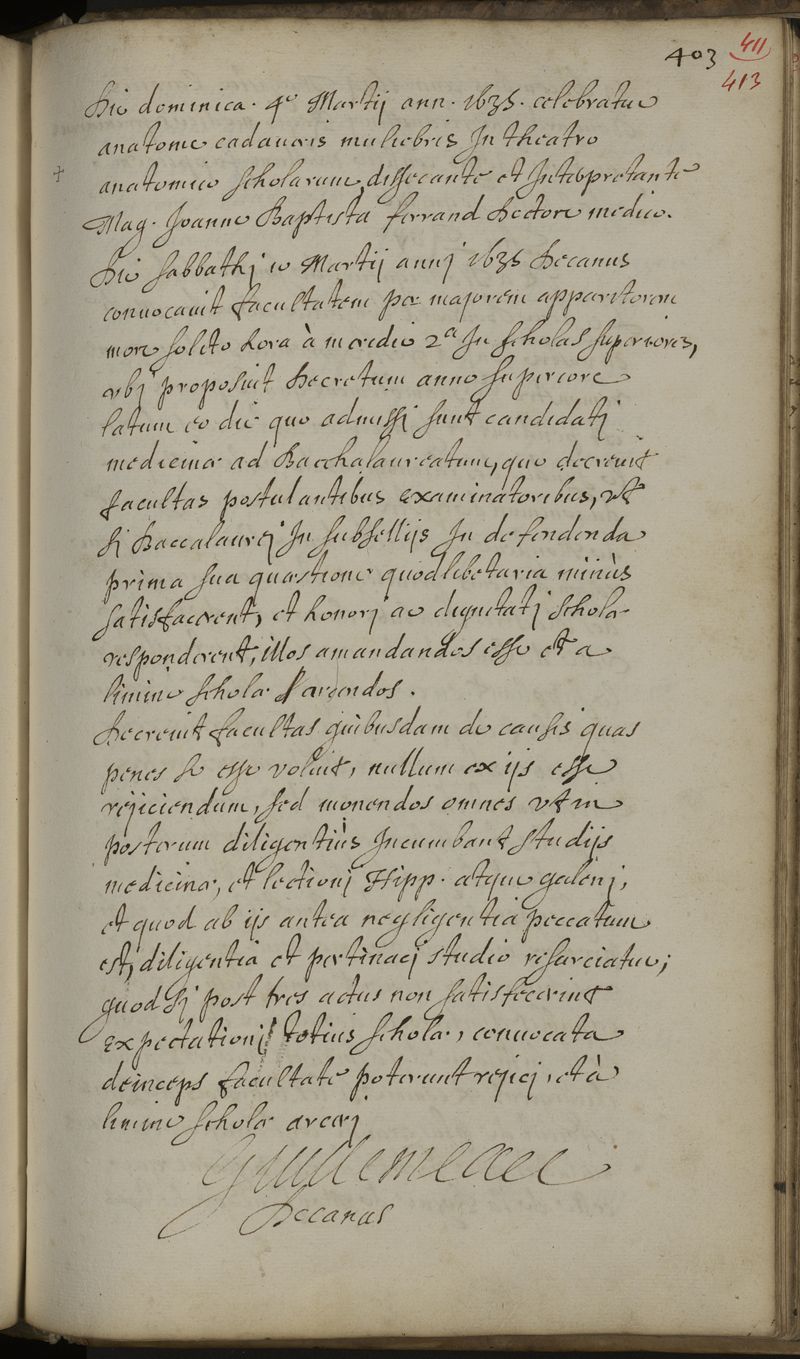 403 411
413
Die dominica. 4a Martij ann. 1635. celebratur
anatome cadaueris muliebris In theatro
+ anatomico scholarum, dissecante et Interpretante
Mag. Joanne Baptista ferrand Doctore medico.
Die sabbathj 10 Martij annj 1635 Decanus
conuocauit facultatem per majorem apparitorem
more solito hora à meredie 2a In scholas superiores,
vbj proposuit Decretum anno superiore
latum eo die quo admissj sunt candidatj
medicinæ ad Bacchalaureatum, quo decreuit
facultas postulantibus examinatoribus, vt
sj Baccalaurej In subsellijs In defendenda
prima sua quæstione quodlibetaria minùs
satisfacerent, et honorj ac dignitatj scholæ
responderent, illos amandandos esse et a
limine scholæ arcendos.
Decreuit facultas quibusdam de causis quas
penes se esse voluit, nullum ex ijs esse
rejiciendum, sed monendos omnes vt in
posterum diligentiùs Incumbant studijs
medicinæ, et lectionj Hipp. atque galenj,
et quod ab ijs antea negligentia peccatum
est, diligentia et pertinacj studio resarciatur;
quod sj post tres actus non satisfecerint
expectationj totius scholæ, conuocata
deinceps facultate poterunt rejicj, et à
limine scholæ arcerj
Guillemeau
Decanus